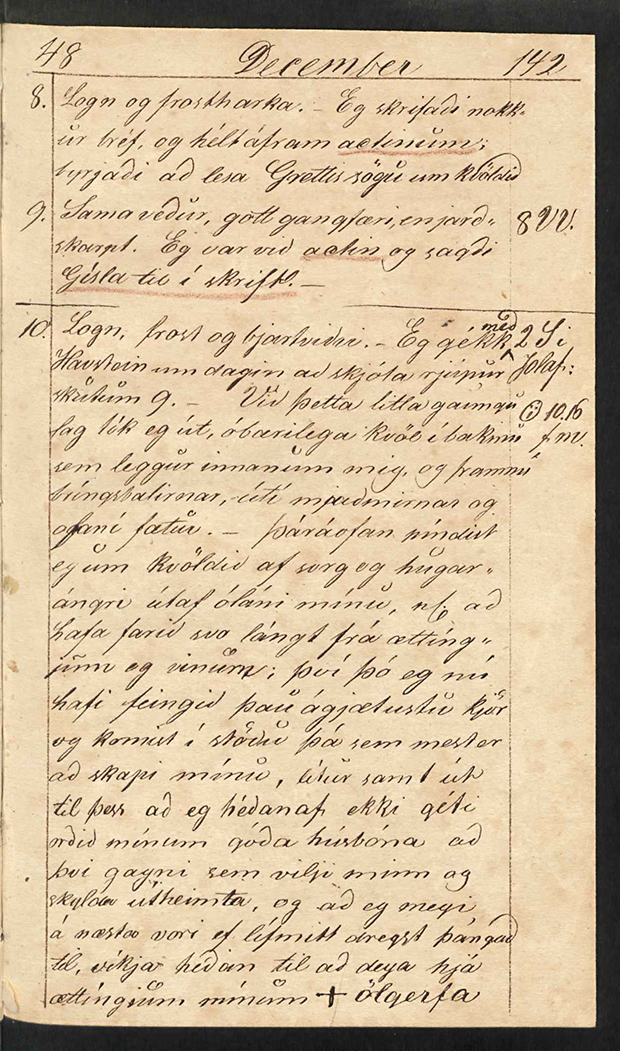 48 December 142
8. Logn og frostharka. – Eg skrifaði nokk-
ur bréf, og hélt áfram actinum;
byrjaði að lesa Grettis sögu um kvöldið
9. Sama veður, gott gangfæri, en jarð- 8 VV.
skarpt. Eg var við actin og sagði
Gísla til í skrift. –
10. Logn, frost og bjartviðri. – Eg gékk með 2 S i
Havstein um dagin að skjóta rjúpur Jolaf:
skutum 9. – Við þetta litla gaungu 10.16
lag tók eg út, óbærilega kvöl í bakinu f.m.
sem leggur innanum mig, og frammí
bringspalirnar, útí mjaðmirnar og
ofaní fætur. – Þaráofan píndist
eg um kvöldið af sorg og hugar-
ángri útaf óláni mínu, nf. að
hafa farið svo lángt frá ætting-
jum og vinum; því þó eg nú
hafi feingið þau ágjætustu kjör
og komist í stöðu þá sem mest er
að skapi mínu, lítur samt út
til þess að eg héðanaf ekki géti
orðið mínum góða húsbóna að
því gagni sem vilji minn og
skylda útheimta, og að eg megi
á næsta vori ef líf mitt dregst þángað
til, víkja héðan til að deya hjá
ættíngjum mínum + ölgerfa